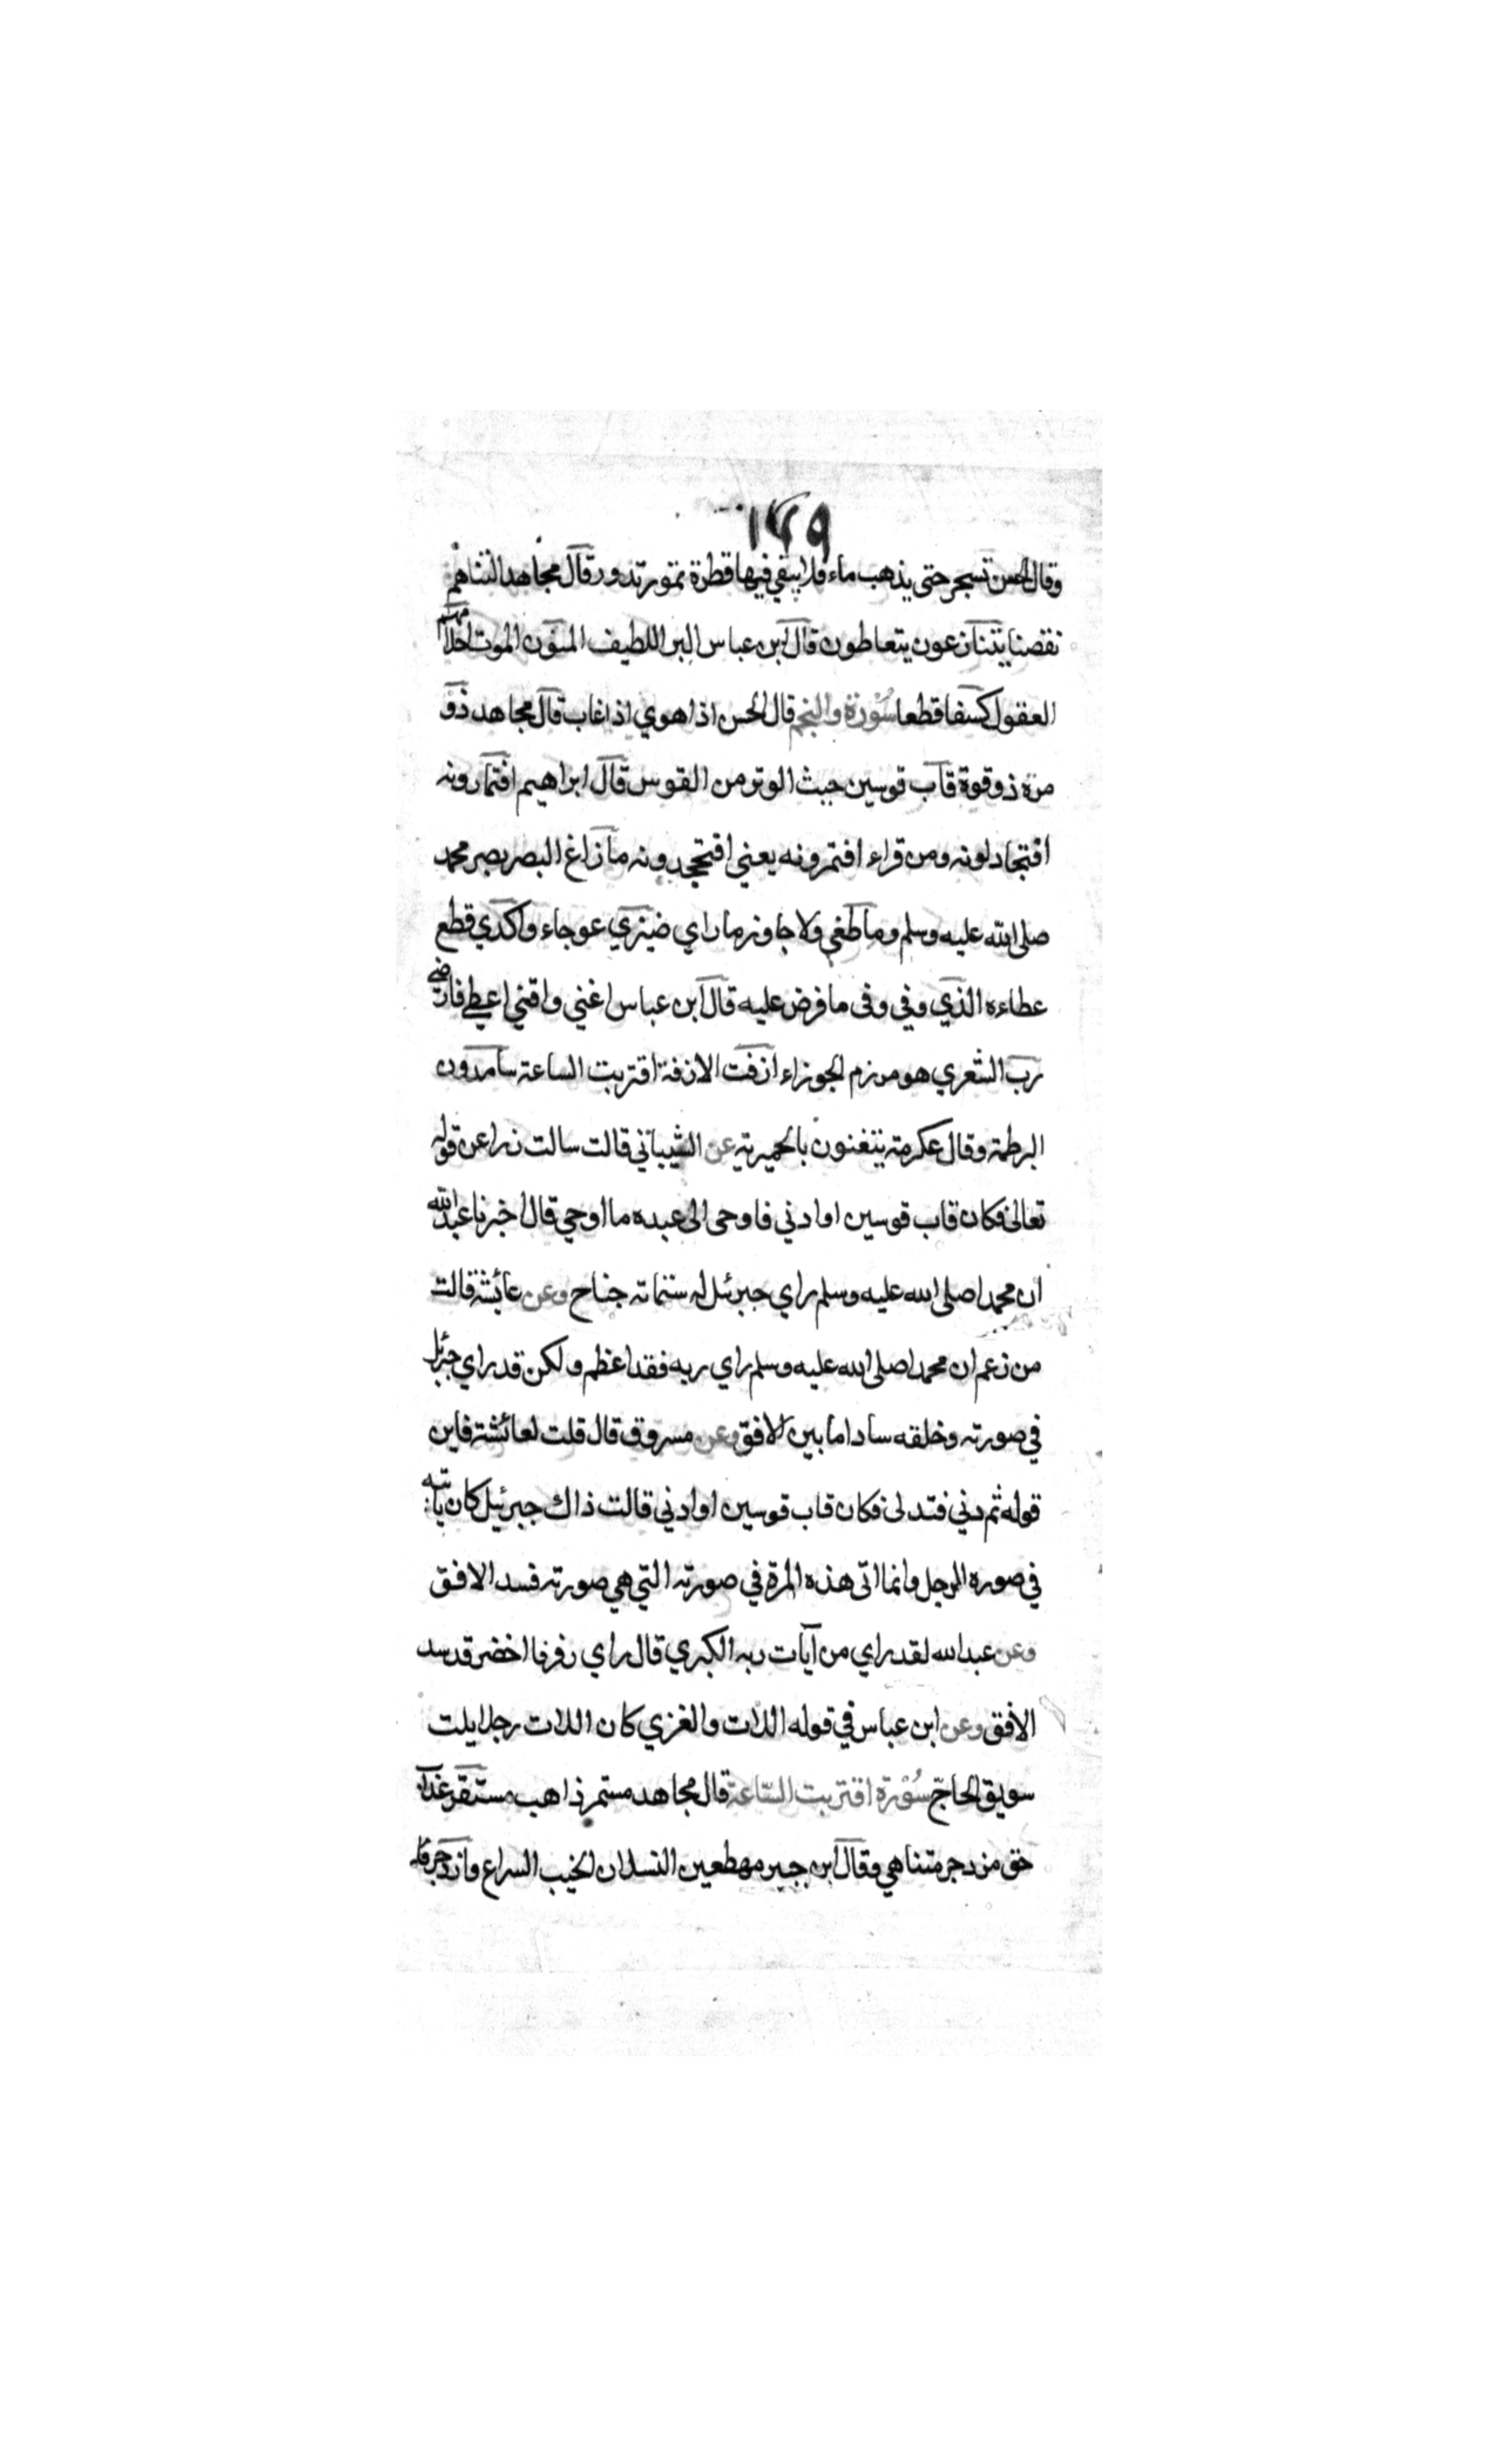 ١٢٩
وقال الحسن تسجر حتى يذهب ماء فلا يبقي فيها قطرة تمور تدور قال مجاهد التناهم
نقصنا يتنازعون يتعاطون قال ابن عباس البر اللطيف المنون الموت احلامهم
العقول كسفا قطعا سُوْرَة والنجم قال الحسن اذا هوي اذا غاب قال مجاهد ذو
مرة ذو قوة قاب قوسين حيث الوتر من القوس قال ابراهيم افتمارونه
افتجادلونه ومن قراء افتمرونه يعني افتجحدونه ما زاغ البصر بصر محمد
صلى الله عليه وسلم وما طغي ولا جاوز ما راي ضيزي عوجاء واكدي قطع
عطاءه الذي وفي وفى ما فرض عليه قال ابن عباس اغني واقني اعطي فارضي
رب الشعري هو مرزم الجوزاء ازفت الازفة اقتربت الساعة سامدون
البرطمة وقال عكرمة يتغنون بالحميرية عن الشيباني قالت سالت زرا عن قوله
تعالى فكان قاب قوسين او ادني فاوحى الى عبده ما اوحي قال اخبرنا عبد الله
ان محمدا صلى الله عليه وسلم راي جبرئل له ستمائة جناح وعن عائشة قالت
من زعم ان محمدا صلى الله عليه وسلم راي ربه فقد اعظم ولكن قد راي جبرئل
في صورته وخلقه سادا ما بين الافق وعن مسروق قال قلت لعائشة فاين
قوله ثم دني فتدلى فكان قاب قوسين او ادني قالت ذاك جبرئيل كان ياتيه
في صوره الرجل وانما اتى هذه المرة في صورته التي هي صورته فسد الافق
وعن عبد الله لقد راي من آيات ربه الكبري قال راي رفرفا اخضر قد سد
الافق وعن ابن عباس في قوله اللات والعزي كان اللات رجلا يلت
سويق الحاج سُوْرَة اقتربت السّاعة قال مجاهد مستمر ذاهب مستقر عذاب
حق مزدجر متناهي وقال ابن جبير مهطعين النسلان الخبب السراع وازدجر